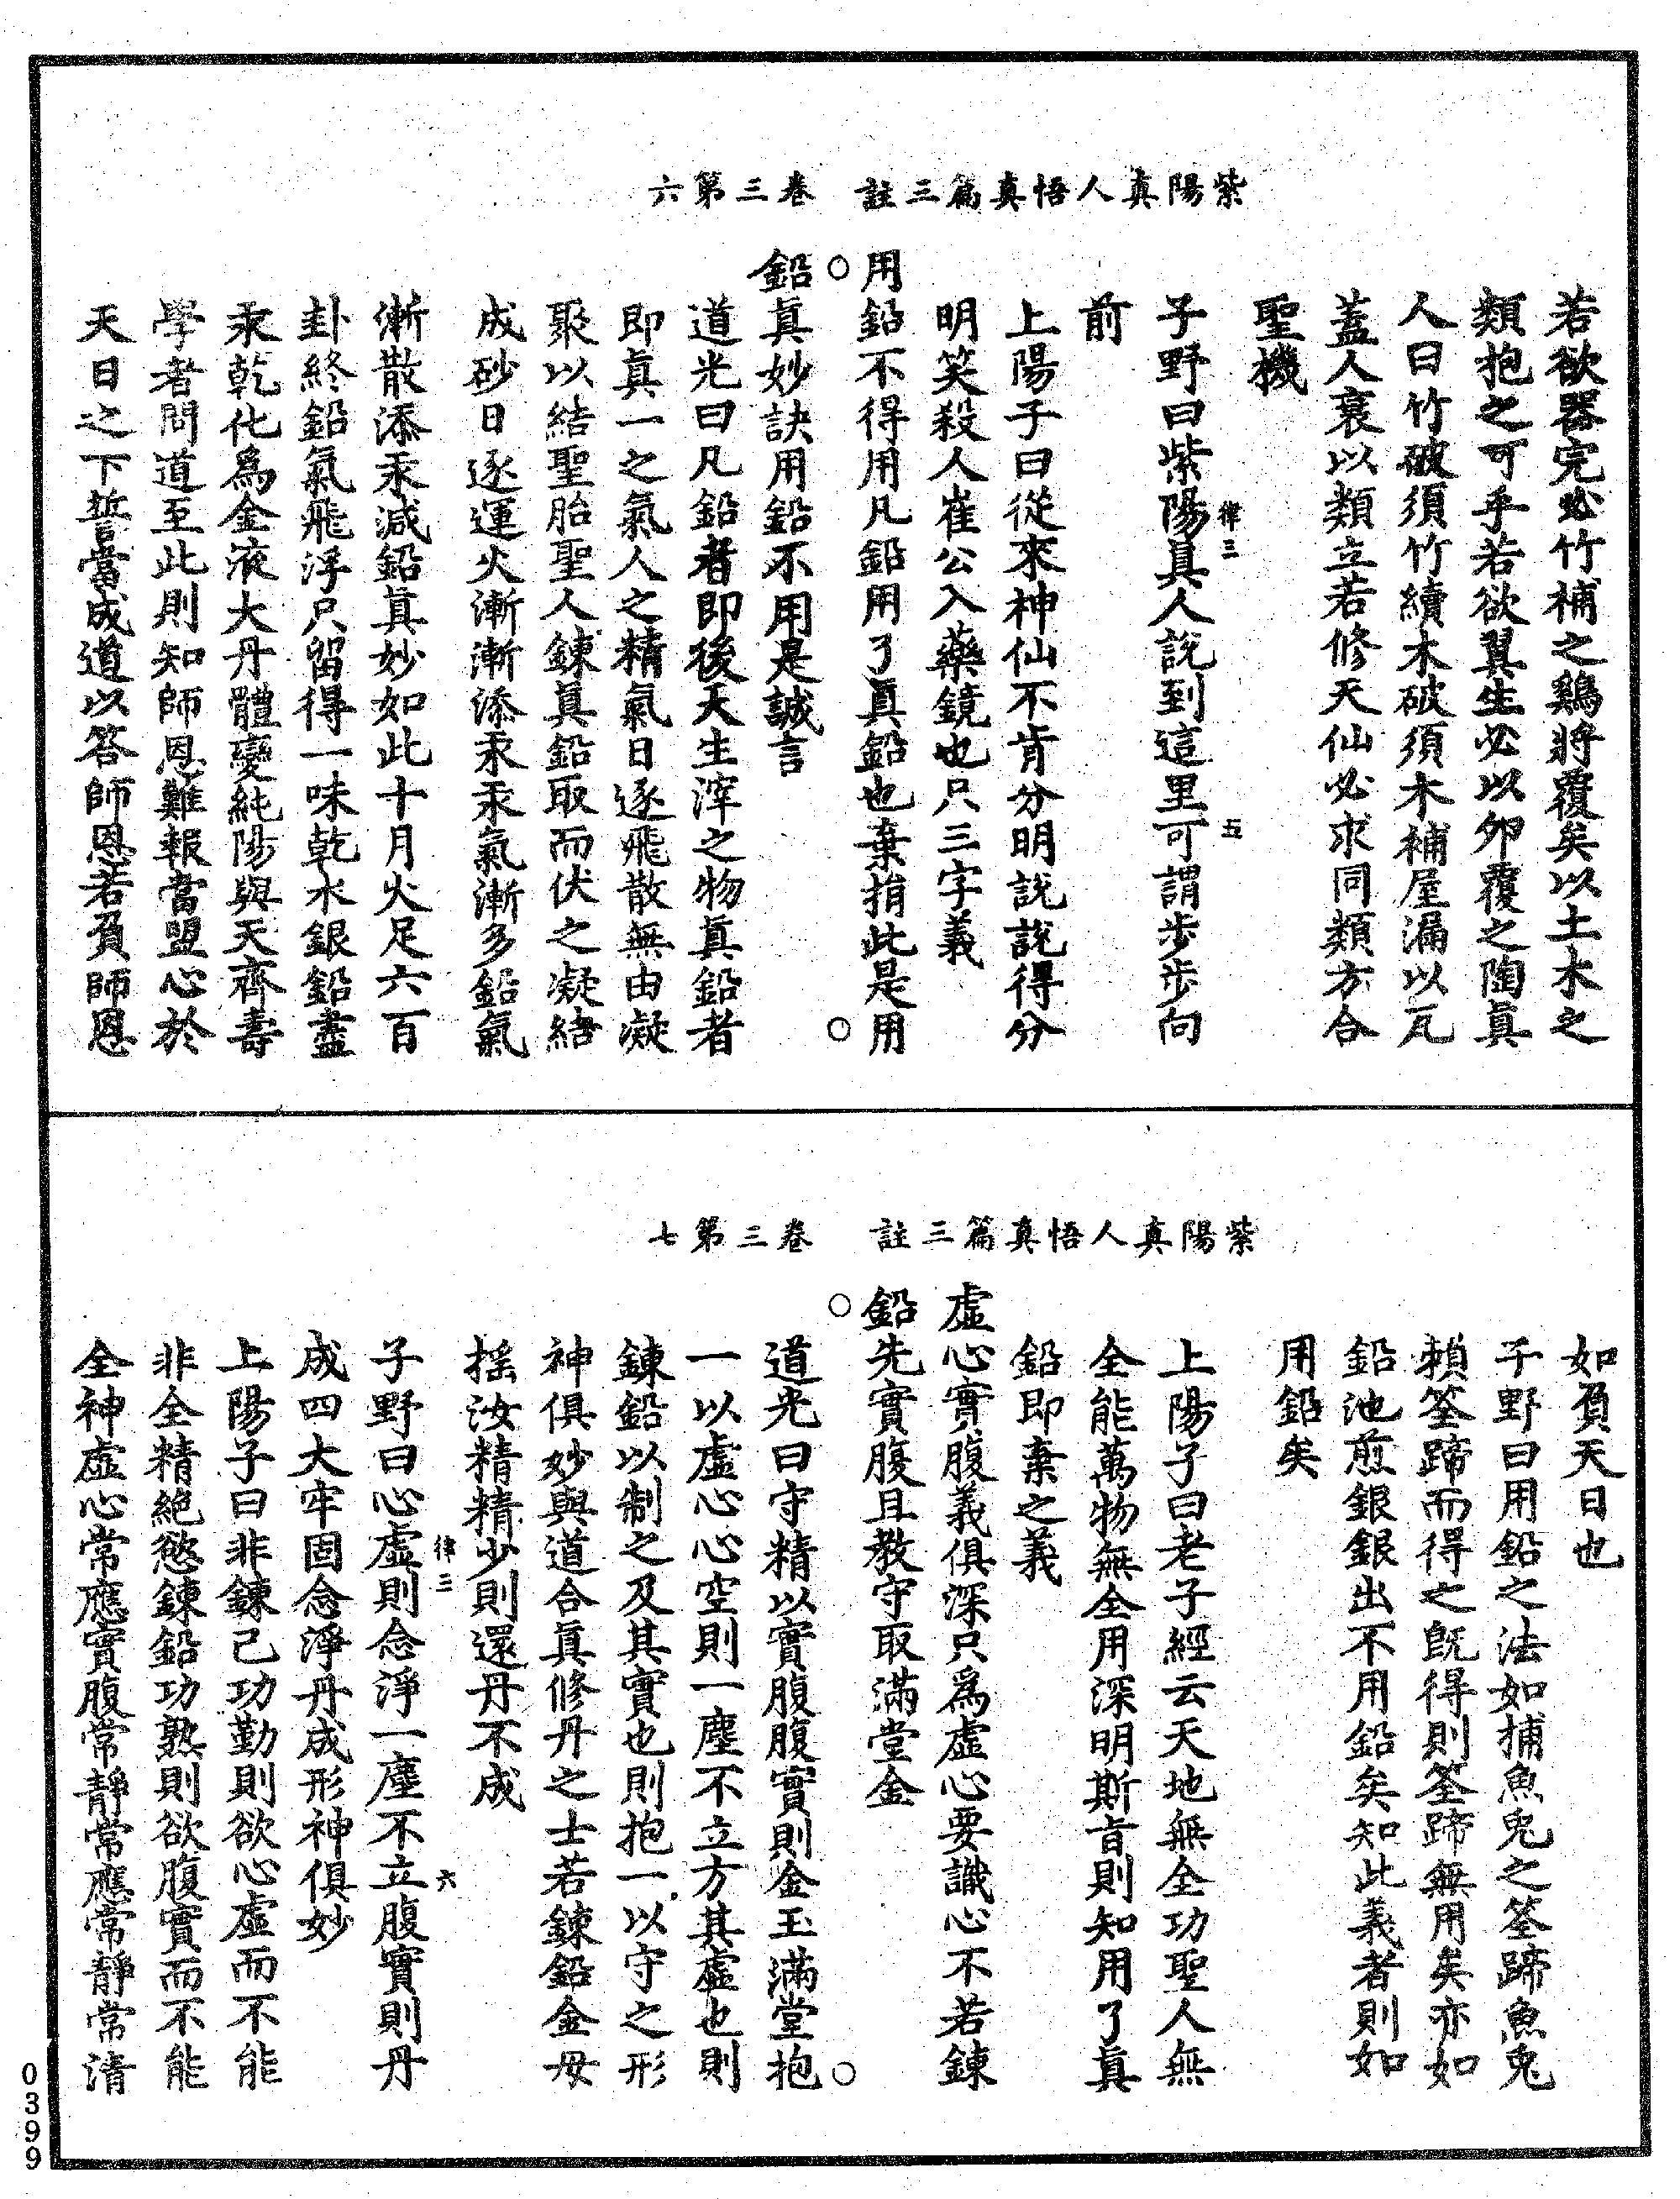 紫陽真人悟真篇三註　卷三第六
若欲器完必竹補之鷄將覆矣以土木之
類抱之可乎若欲翼生必以卵覆之陶真
人曰竹破須竹續木破須木補屋漏以瓦
蓋人衰以類立若修天仙必求同類方合
聖機
子野曰紫陽真人說到這里可謂步步向
律三　五
前
上陽子曰從來神仙不肯分明說說得分
明笑殺人崔公入藥鏡也只三字義
用鉛不得用凡鉛用了真鉛也棄捐此是用
○　○
鉛真妙訣用鉛不用是誠言
道光曰凡鉛者即後天生滓之物真鉛者
即真一之氣人之精氣日逐飛散無由凝
聚以結聖胎聖人鍊真鉛取而伏之凝結
成砂日逐運火漸漸添汞汞氣漸多鉛氣
漸散添汞減鉛真妙如此十月火足六百
卦終鉛氣飛浮只留得一味乾水銀鉛盡
汞乾化爲金液大丹體變純陽與天齊壽
學者問道至此則知師恩難報當盟心於
天日之下誓當成道以答師恩若負師恩
紫陽真人悟真篇三註　卷三第七
如負天日也
子野曰用鉛之法如捕魚兔之筌蹄魚兔
賴筌蹄而得之既得則筌蹄無用矣亦如
鉛池煎銀銀出不用鉛矣知此義者則如
用鉛矣
上陽子曰老子經云天地無全功聖人無
全能萬物無全用深明斯旨則知用了真
鉛即棄之義
虛心實腹義俱深只爲虛心要識心不若鍊
鉛先實腹且教守取滿堂金
○　○
道光曰守精以實腹腹實則金玉滿堂抱
一以虛心心空則一塵不立方其虛也則
鍊鉛以制之及其實也則抱一以守之形
神俱妙與道合真修丹之士若鍊鉛金母
搖汝精精少則還丹不成
子野曰心虛則念淨一塵不立腹實則丹
律三　六
成四大牢固念淨丹成形神俱妙
上陽子曰非鍊己功勤則欲心虛而不能
非全精絕慾鍊鉛功熟則欲腹實而不能
全神虛心常應實腹常靜常應常靜常清
0399